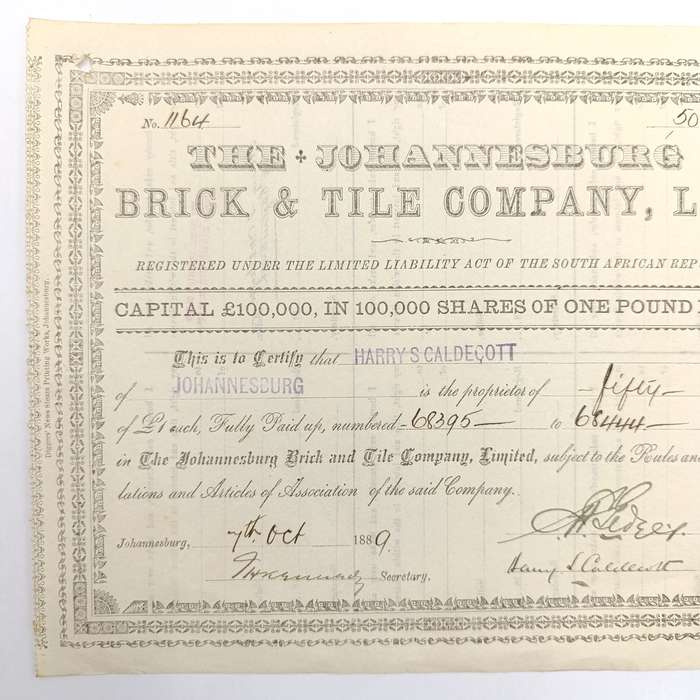 No. 1164 50
THE JOHANNESBURG
BRICK & TILE COMPANY, L
REGISTERED UNDER THE LIMITED LIABILITY ACT OF THE SOUTH AFRICAN REP
CAPITAL £100,000, IN 100,000 SHARES OF ONE POUND
This is to Certify that HARRY S CALDECOTT
of JOHANNESBURG is the proprietor of -fifty-
of £1 each, Fully Paid up, numbered -68395- to 68444-
in The Johannesburg Brick and Tile Company, Limited, subject to the Rules and
lations and Articles of Association of the said Company.
Johannesburg, 7th Oct 1889.
Harry S Caldecott
Secretary.
Diggers' News Steam Printing Works, Johannesburg.